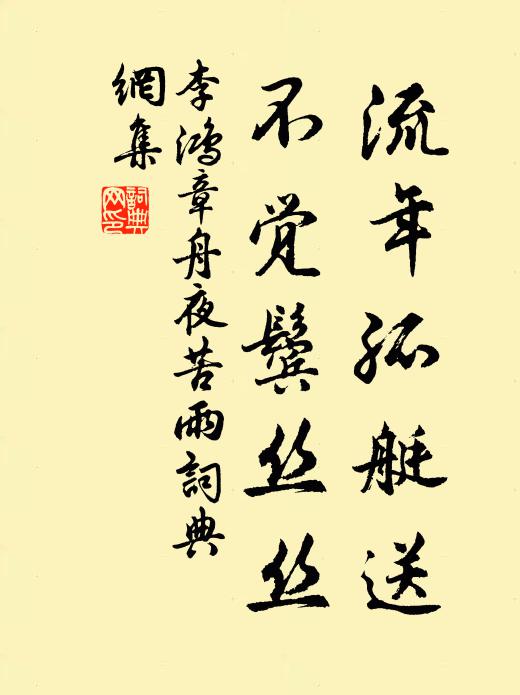 流年孤艇送
不觉鬓丝丝
李鴻章舟夜苦雨詞典
網集
詞典
网印